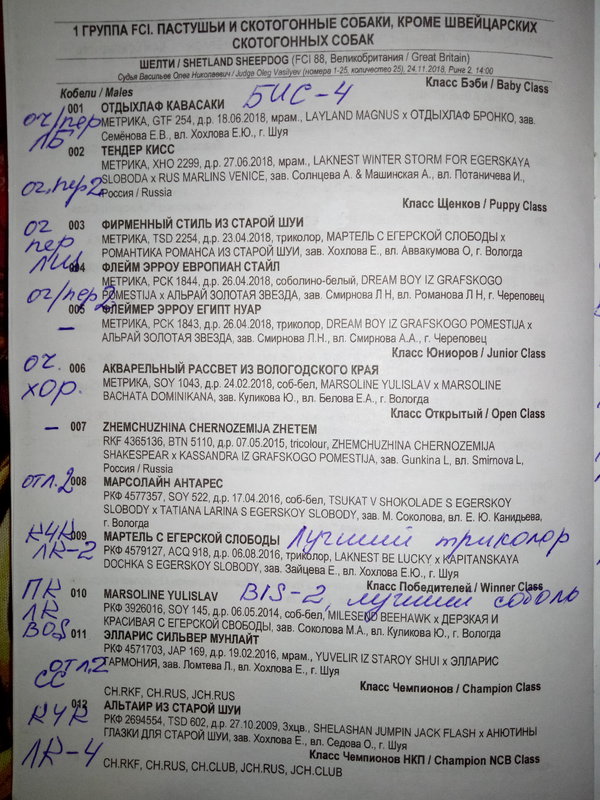 1 ГРУППА FCI. ПАСТУШЬИ И СКОТОГОННЫЕ СОБАКИ, КРОМЕ ШВЕЙЦАРСКИХ
СКОТОГОННЫХ СОБАК
ШЕЛТИ / SHETLAND SHEEPDOG (FCI 88, Великобритания / Great Britain)
Судья Васильев Олег Николаевич / Judge Oleg Vasilyev (номера 1-25, количество 25), 24.11.2018, Ринг 2, 14:00
Класс Бэби / Baby Class
Кобели / Males
001 ОТДЫХЛАФ КАВАСАКИ БИС-4
оч/пер МЕТРИКА, GTF 254, д.р. 18.06.2018, мрам., LAYLAND MAGNUS x ОТДЫХЛАФ БРОНКО, зав.
ЛБ Семёнова Е.В., вл. Хохлова Е.Ю., г. Шуя
002 ТЕНДЕР КИСС
МЕТРИКА, XHO 2299, д.р. 27.06.2018, мрам., LAKNEST WINTER STORM FOR EGERSKAYA
SLOBODA x RUS MARLINS VENICE, зав. Солнцева А. & Машинская А., вл. Потаничева И.,
оч, пер 2 Россия / Russia
Класс Щенков / Puppy Class
оч 003 ФИРМЕННЫЙ СТИЛЬ ИЗ СТАРОЙ ШУИ
пер МЕТРИКА, TSD 2254, д.р. 23.04.2018, триколор, МАРТЕЛЬ С ЕГЕРСКОЙ СЛОБОДЫ x
РОМАНТИКА РОМАНСА ИЗ СТАРОЙ ШУИ, зав. Хохлова Е., вл. Аввакумова О, г. Вологда
ЛЩ 004 ФЛЕЙМ ЭРРОУ ЕВРОПИАН СТАЙЛ
МЕТРИКА, РСК 1844, д.р. 26.04.2018, соболино-белый, DREAM BOY IZ GRAFSKOGO
оч/пер 2 POMESTIJA x АЛЬРАЙ ЗОЛОТАЯ ЗВЕЗДА, зав. Смирнова Л Н, вл. Романова Л Н, г. Череповец
005 ФЛЕЙМЕР ЭРРОУ ЕГИПТ НУАР
– МЕТРИКА, РСК 1843, д.р. 26.04.2018, триколор, DREAM BOY IZ GRAFSKOGO POMESTIJA x
АЛЬРАЙ ЗОЛОТАЯ ЗВЕЗДА, зав. Смирнова Л.Н., вл. Смирнова А.А., г. Череповец
Класс Юниоров / Junior Class
оч. 006 АКВАРЕЛЬНЫЙ РАССВЕТ ИЗ ВОЛОГОДСКОГО КРАЯ
хор. МЕТРИКА, SOY 1043, д.р. 24.02.2018, соб-бел, MARSOLINE YULISLAV x MARSOLINE
BACHATA DOMINIKANA, зав. Куликова Ю., вл. Белова Е.А., г. Вологда
Класс Открытый / Open Class
– 007 ZHEMCHUZHINA CHERNOZEMIJA ZHETEM
RKF 4365136, BTN 5110, д.р. 07.05.2015, tricolour, ZHEMCHUZHINA CHERNOZEMIJA
SHAKESPEAR x KASSANDRA IZ GRAFSKOGO POMESTIJA, зав. Gunkina L, вл. Smirnova L,
Россия / Russia
отл. 2 008 МАРСОЛАЙН АНТАРЕС
РКФ 4577357, SOY 522, д.р. 17.04.2016, соб-бел, TSUKAT V SHOKOLADE S EGERSKOY
SLOBODY x TATIANA LARINA S EGERSKOY SLOBODY, зав. М. Соколова, вл. Е. Ю. Канидьева,
г. Вологда
КЧК 009 МАРТЕЛЬ С ЕГЕРСКОЙ СЛОБОДЫ Лучший триколор
ЛК-2 РКФ 4579127, ACQ 918, д.р. 06.08.2016, триколор, LAKNEST BE LUCKY x KAPITANSKAYA
DOCHKA S EGERSKOY SLOBODY, зав. Зайцева Е., вл. Хохлова Е.Ю., г. Шуя
Класс Победителей / Winner Class
ПК 010 MARSOLINE YULISLAV BIS-2, лучший соболь
ЛК РКФ 3926016, SOY 145, д.р. 06.05.2014, соб-бел, MILESEND BEEHAWK x ДЕРЗКАЯ И
BOS КРАСИВАЯ С ЕГЕРСКОЙ СВОБОДЫ, зав. Соколова М.А., вл. Куликова Ю., г. Вологда
011 ЭЛЛАРИС СИЛЬВЕР МУНЛАЙТ
РКФ 4571703, JAP 169, д.р. 19.02.2016, мрам., YUVELIR IZ STAROY SHUI x ЭЛЛАРИС
отл. 2 ГАРМОНИЯ, зав. Ломтева Л., вл. Хохлова Е., г. Шуя
СС
CH.RKF, CH.RUS, JCH.RUS
Класс Чемпионов / Champion Class
012 АЛЬТАИР ИЗ СТАРОЙ ШУИ
КЧК РКФ 2694554, TSD 602, д.р. 27.10.2009, 3хцв., SHELASHAN JUMPIN JACK FLASH x АНЮТИНЫ
ГЛАЗКИ ДЛЯ СТАРОЙ ШУИ, зав. Хохлова Е., вл. Седова О., г. Шуя
ЛК-4
CH.RKF, CH.RUS, CH.CLUB, JCH.RUS, JCH.CLUB
Класс Чемпионов НКП / Champion NCB Class